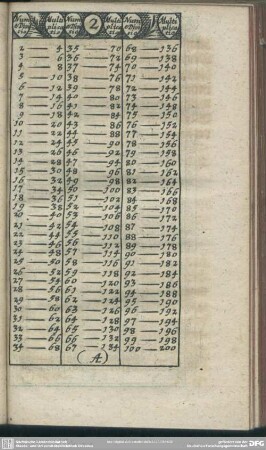 2
Multi Multi Multi
plica plica plica
2 — 4 35 — 70 68 — 136
3 — 6 36 — 72 69 — 138
4 — 8 37 — 74 70 — 140
5 — 10 38 — 76 71 — 142
6 — 12 39 — 78 72 — 144
7 — 14 40 — 80 73 — 146
8 — 16 41 — 82 74 — 148
9 — 18 42 — 84 75 — 150
10 — 20 43 — 86 76 — 152
11 — 22 44 — 88 77 — 154
12 — 24 45 — 90 78 — 156
13 — 26 46 — 92 79 — 158
14 — 28 47 — 94 80 — 160
15 — 30 48 — 96 81 — 162
16 — 32 49 — 98 82 — 164
17 — 34 50 — 100 83 — 166
18 — 36 51 — 102 84 — 168
19 — 38 52 — 104 85 — 170
20 — 40 53 — 106 86 — 172
21 — 42 54 — 108 87 — 174
22 — 44 55 — 110 88 — 176
23 — 46 56 — 112 89 — 178
24 — 48 57 — 114 90 — 180
25 — 50 58 — 116 91 — 182
26 — 52 59 — 118 92 — 184
27 — 54 60 — 120 93 — 186
28 — 56 61 — 122 94 — 188
29 — 58 62 — 124 95 — 190
30 — 60 63 — 126 96 — 192
31 — 62 64 — 128 97 — 194
32 — 64 65 — 130 98 — 196
33 — 66 66 — 132 99 — 198
34 — 68 67 — 134 100 — 200
(A)
DFG